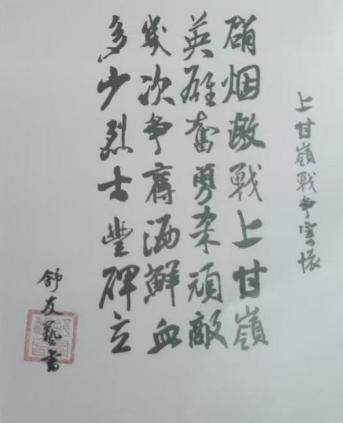 上甘嶺戰争懷
硝烟激戰上甘嶺
英雄奮勇杀頑敵
幾次争奪洒鮮血
多少烈士豐碑立
舒友藝書